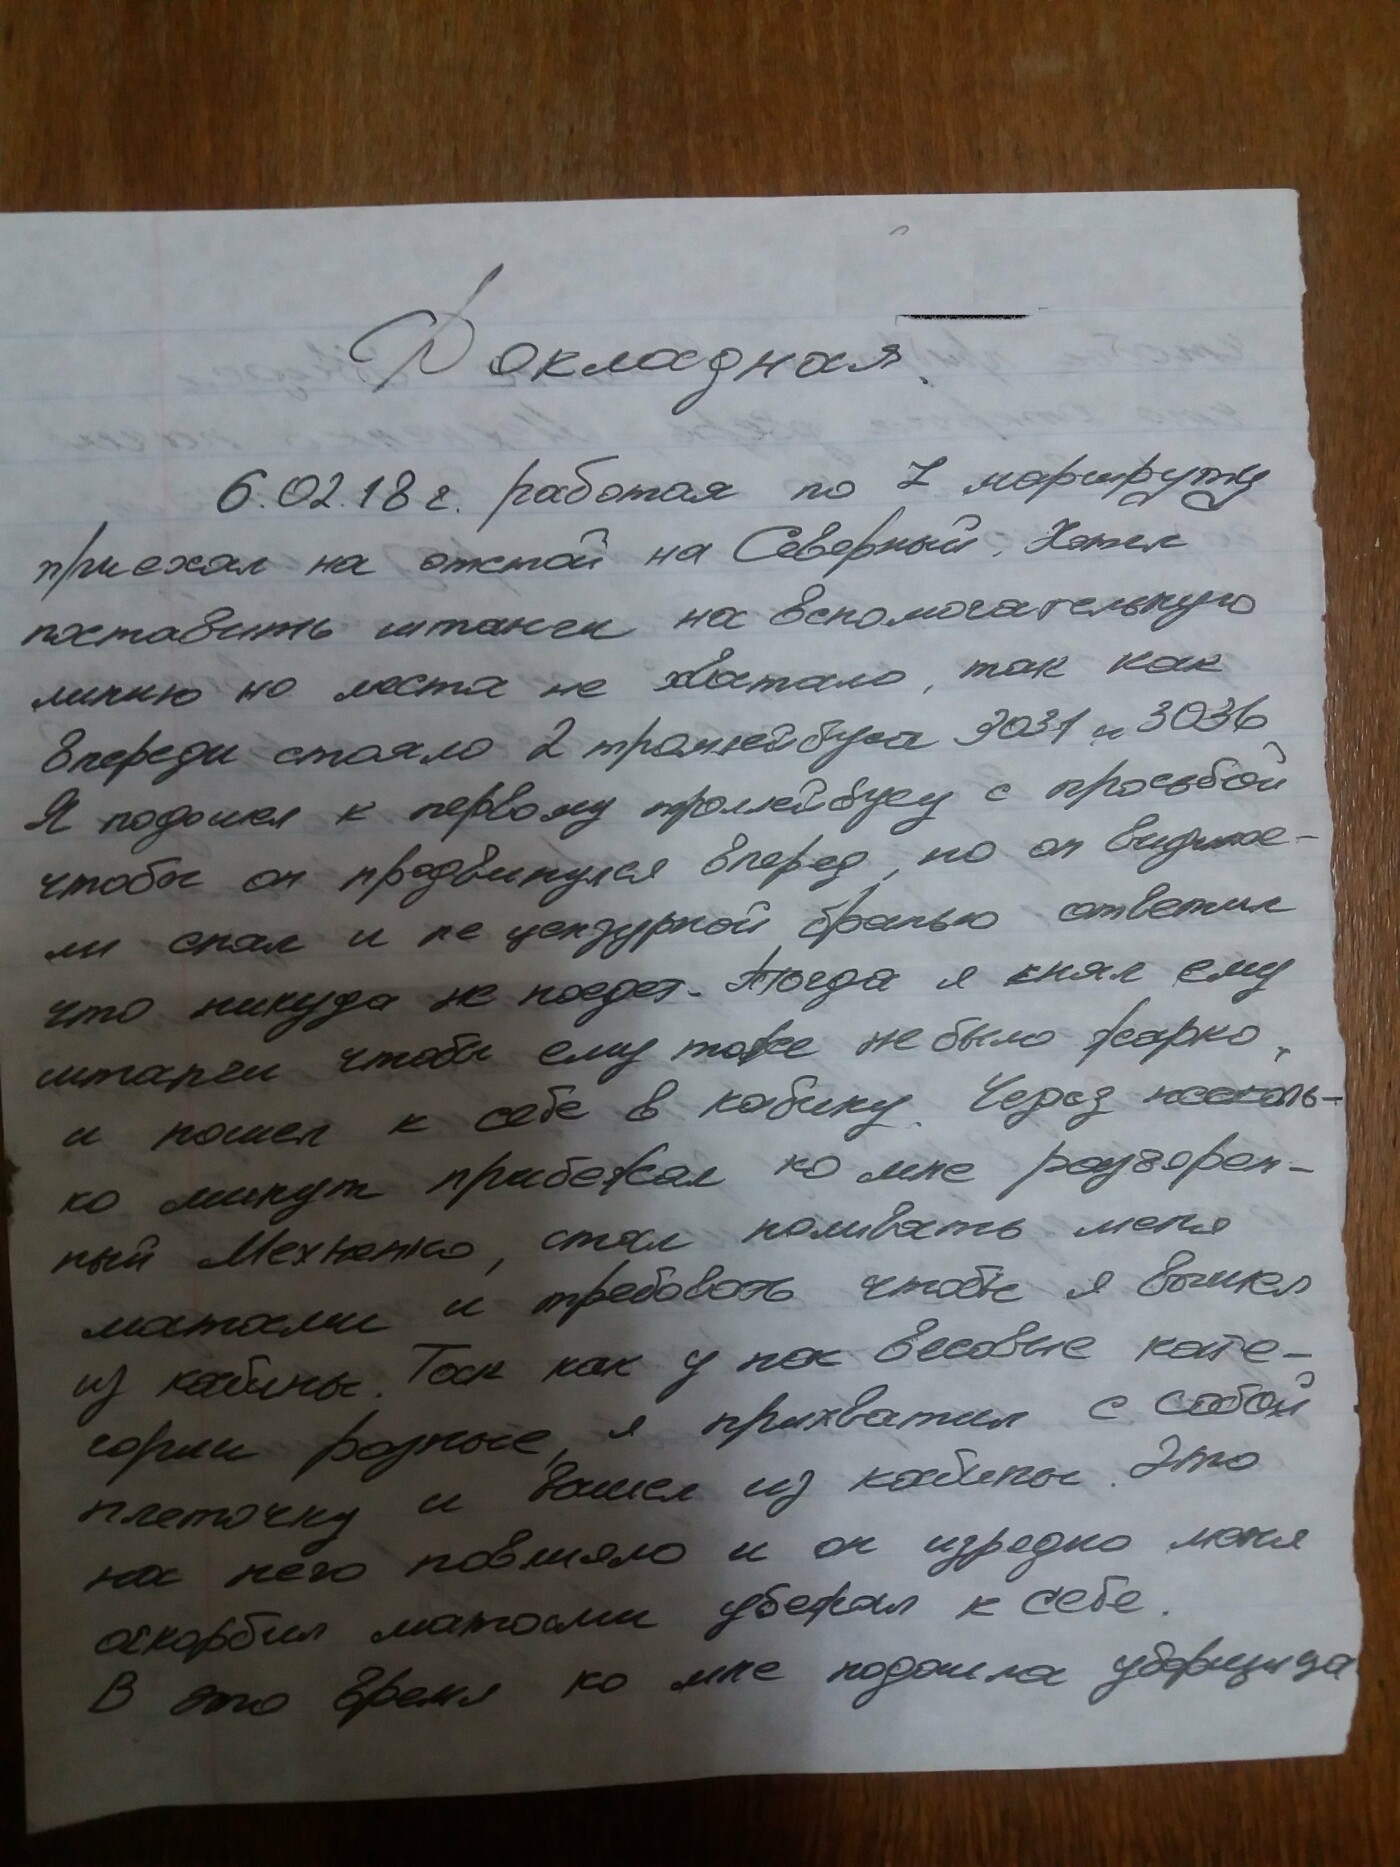 Докладная.
6.02.18 г. работая по 7 маршруту
приехал на отстой на Северный. Хотел
поставить штанги на вспомогательную
линию но места не хватало, так как
впереди стояло 2 троллейбуса 3031 и 3036
Я подошел к первому троллейбусу с просьбой
чтобы он продвинулся вперед, но он видимо-
ли спал и не цензурной бранью ответил
что никуда не поедет. Тогда я снял ему
штанги чтобы ему тоже не было жарко,
и пошел к себе в кабину. Через несколь-
ко минут прибежал ко мне разъярен-
ный стал поливать меня
матами и требовать чтобы я вышел
из кабины. Так как у нас весовые кате-
гории разные, я прихватил с собой
плеточку и вышел из кабины. Это
на него повлияло и он изредко меня
оскорбил матами убежал к себе.
В это время ко мне подошла уборщица